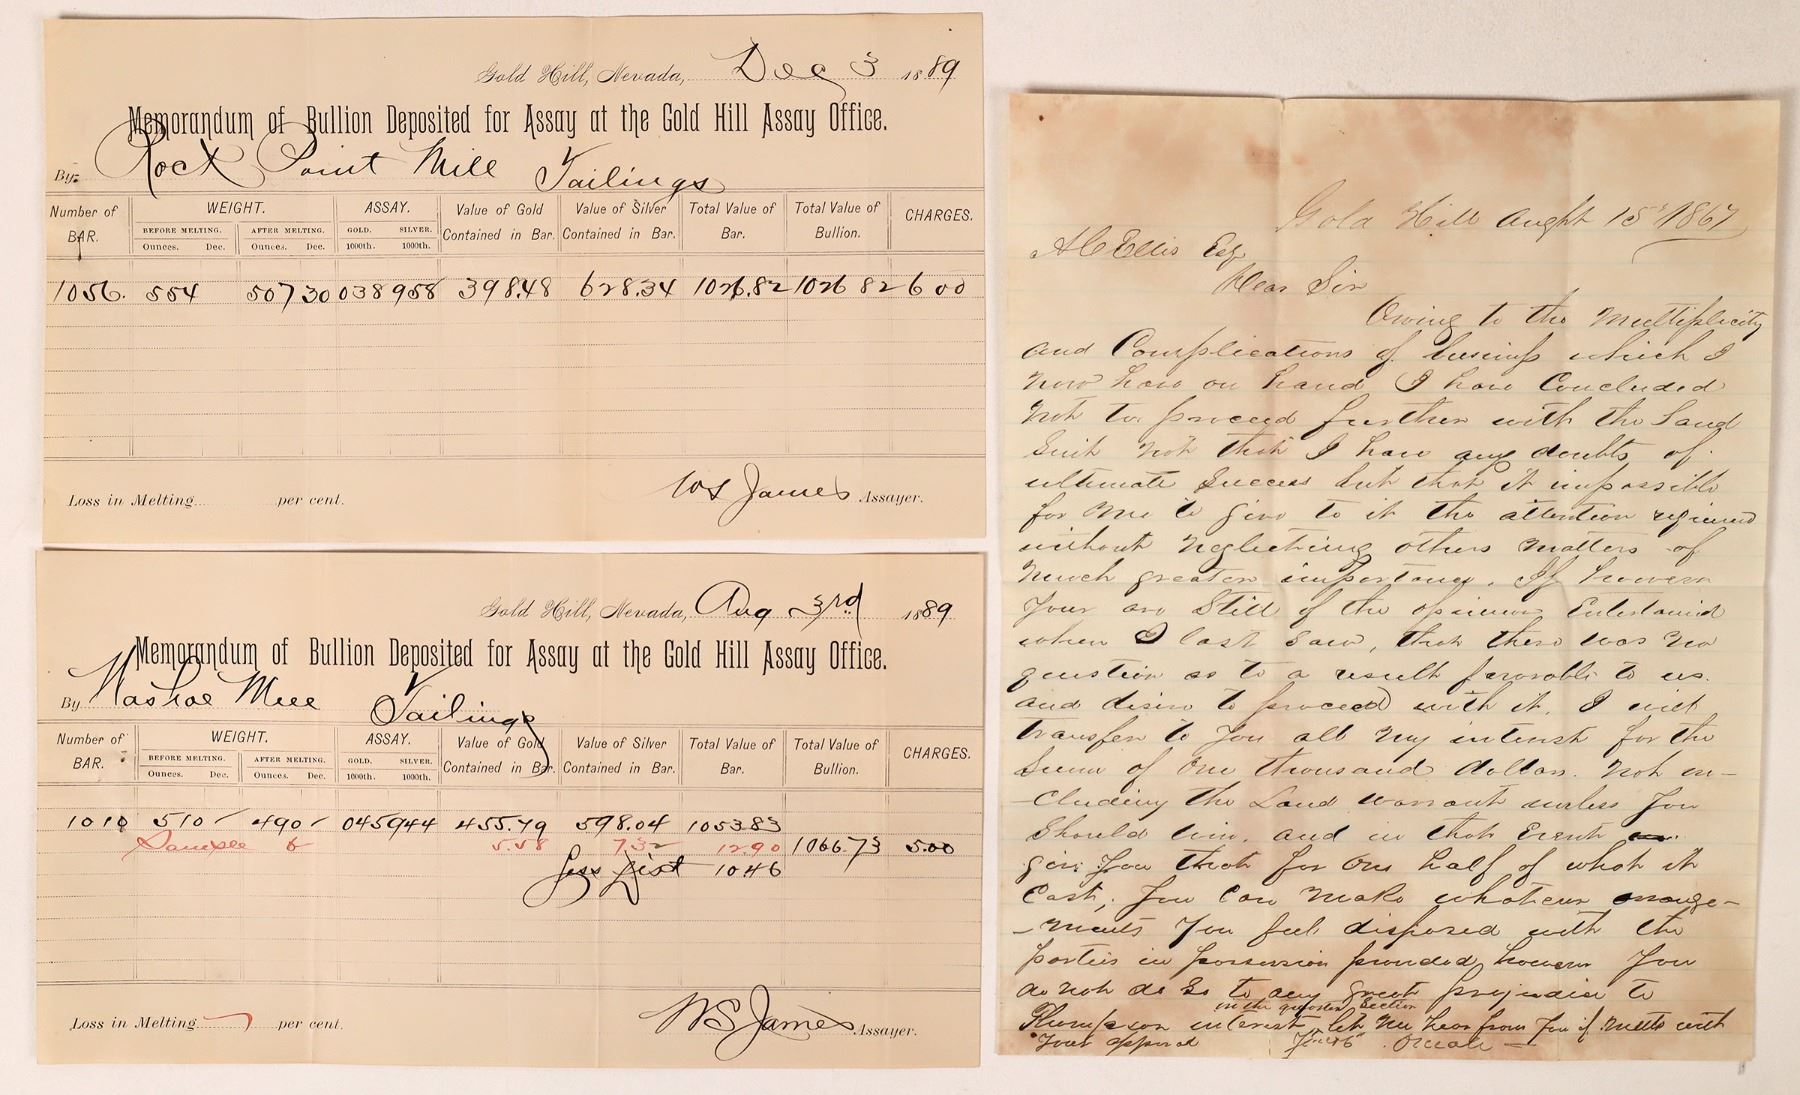 Gold Hill, Nevada, Dec 3 1889
Memorandum of Bullion Deposited for Assay at the Gold Hill Assay Office.
By Rock Point Mill Tailings
Number of BAR. WEIGHT. ASSAY. Value of Gold Contained in Bar. Value of Silver Contained in Bar. Total Value of Bar. Total Value of Bullion. CHARGES.
BEFORE MELTING. AFTER MELTING. GOLD. SILVER.
Ounces. Dec. Ounces. Dec. 1000th. 1000th.
1056. 554 507 30 038 958 398.48 628.34 1026.82 1026 82 6 00
Loss in Melting per cent. WS James Assayer.
Gold Hill, Nevada, Aug 3rd 1889
Memorandum of Bullion Deposited for Assay at the Gold Hill Assay Office.
By Washoe Mill Tailings
Number of BAR. WEIGHT. ASSAY. Value of Gold Contained in Bar. Value of Silver Contained in Bar. Total Value of Bar. Total Value of Bullion. CHARGES.
BEFORE MELTING. AFTER MELTING. GOLD. SILVER.
Ounces. Dec. Ounces. Dec. 1000th. 1000th.
1010 510 490 045 944 455.79 598.04 1053.83
Sample 6 5.58 7.32 12.90 1066.73 5.00
Less Dist 1046
Loss in Melting per cent. WS James Assayer.
Gold Hill Aught 15 1867
A C Ellis Esq
Dear Sir
Owing to the Multiplicity
and Complications of business which I
now have on hand I have Concluded
not to proceed further with the Land
Suit not that I have any doubts of
ultimate Success but that it impossible
for me to give to it the attention required
without neglecting others matters of
much greater importance. If however
your are Still of the opinion Entertained
when I last saw, that there was no
question as to a result favorable to us.
and desire to proceed with it. I will
transfer to you all my interest for the
Sum of One thousand dollars. not in-
-cluding the Land warrant unless you
Should win. and in that Event
give you that for One half of what it
Cost, You Can Make whatever arrange-
-ments You feel disposed with the
parties in possession provided however You
do not do So to any great prejudice to
in the Section
Thompson interest, let me hear from you if meets with
Your approval Yours